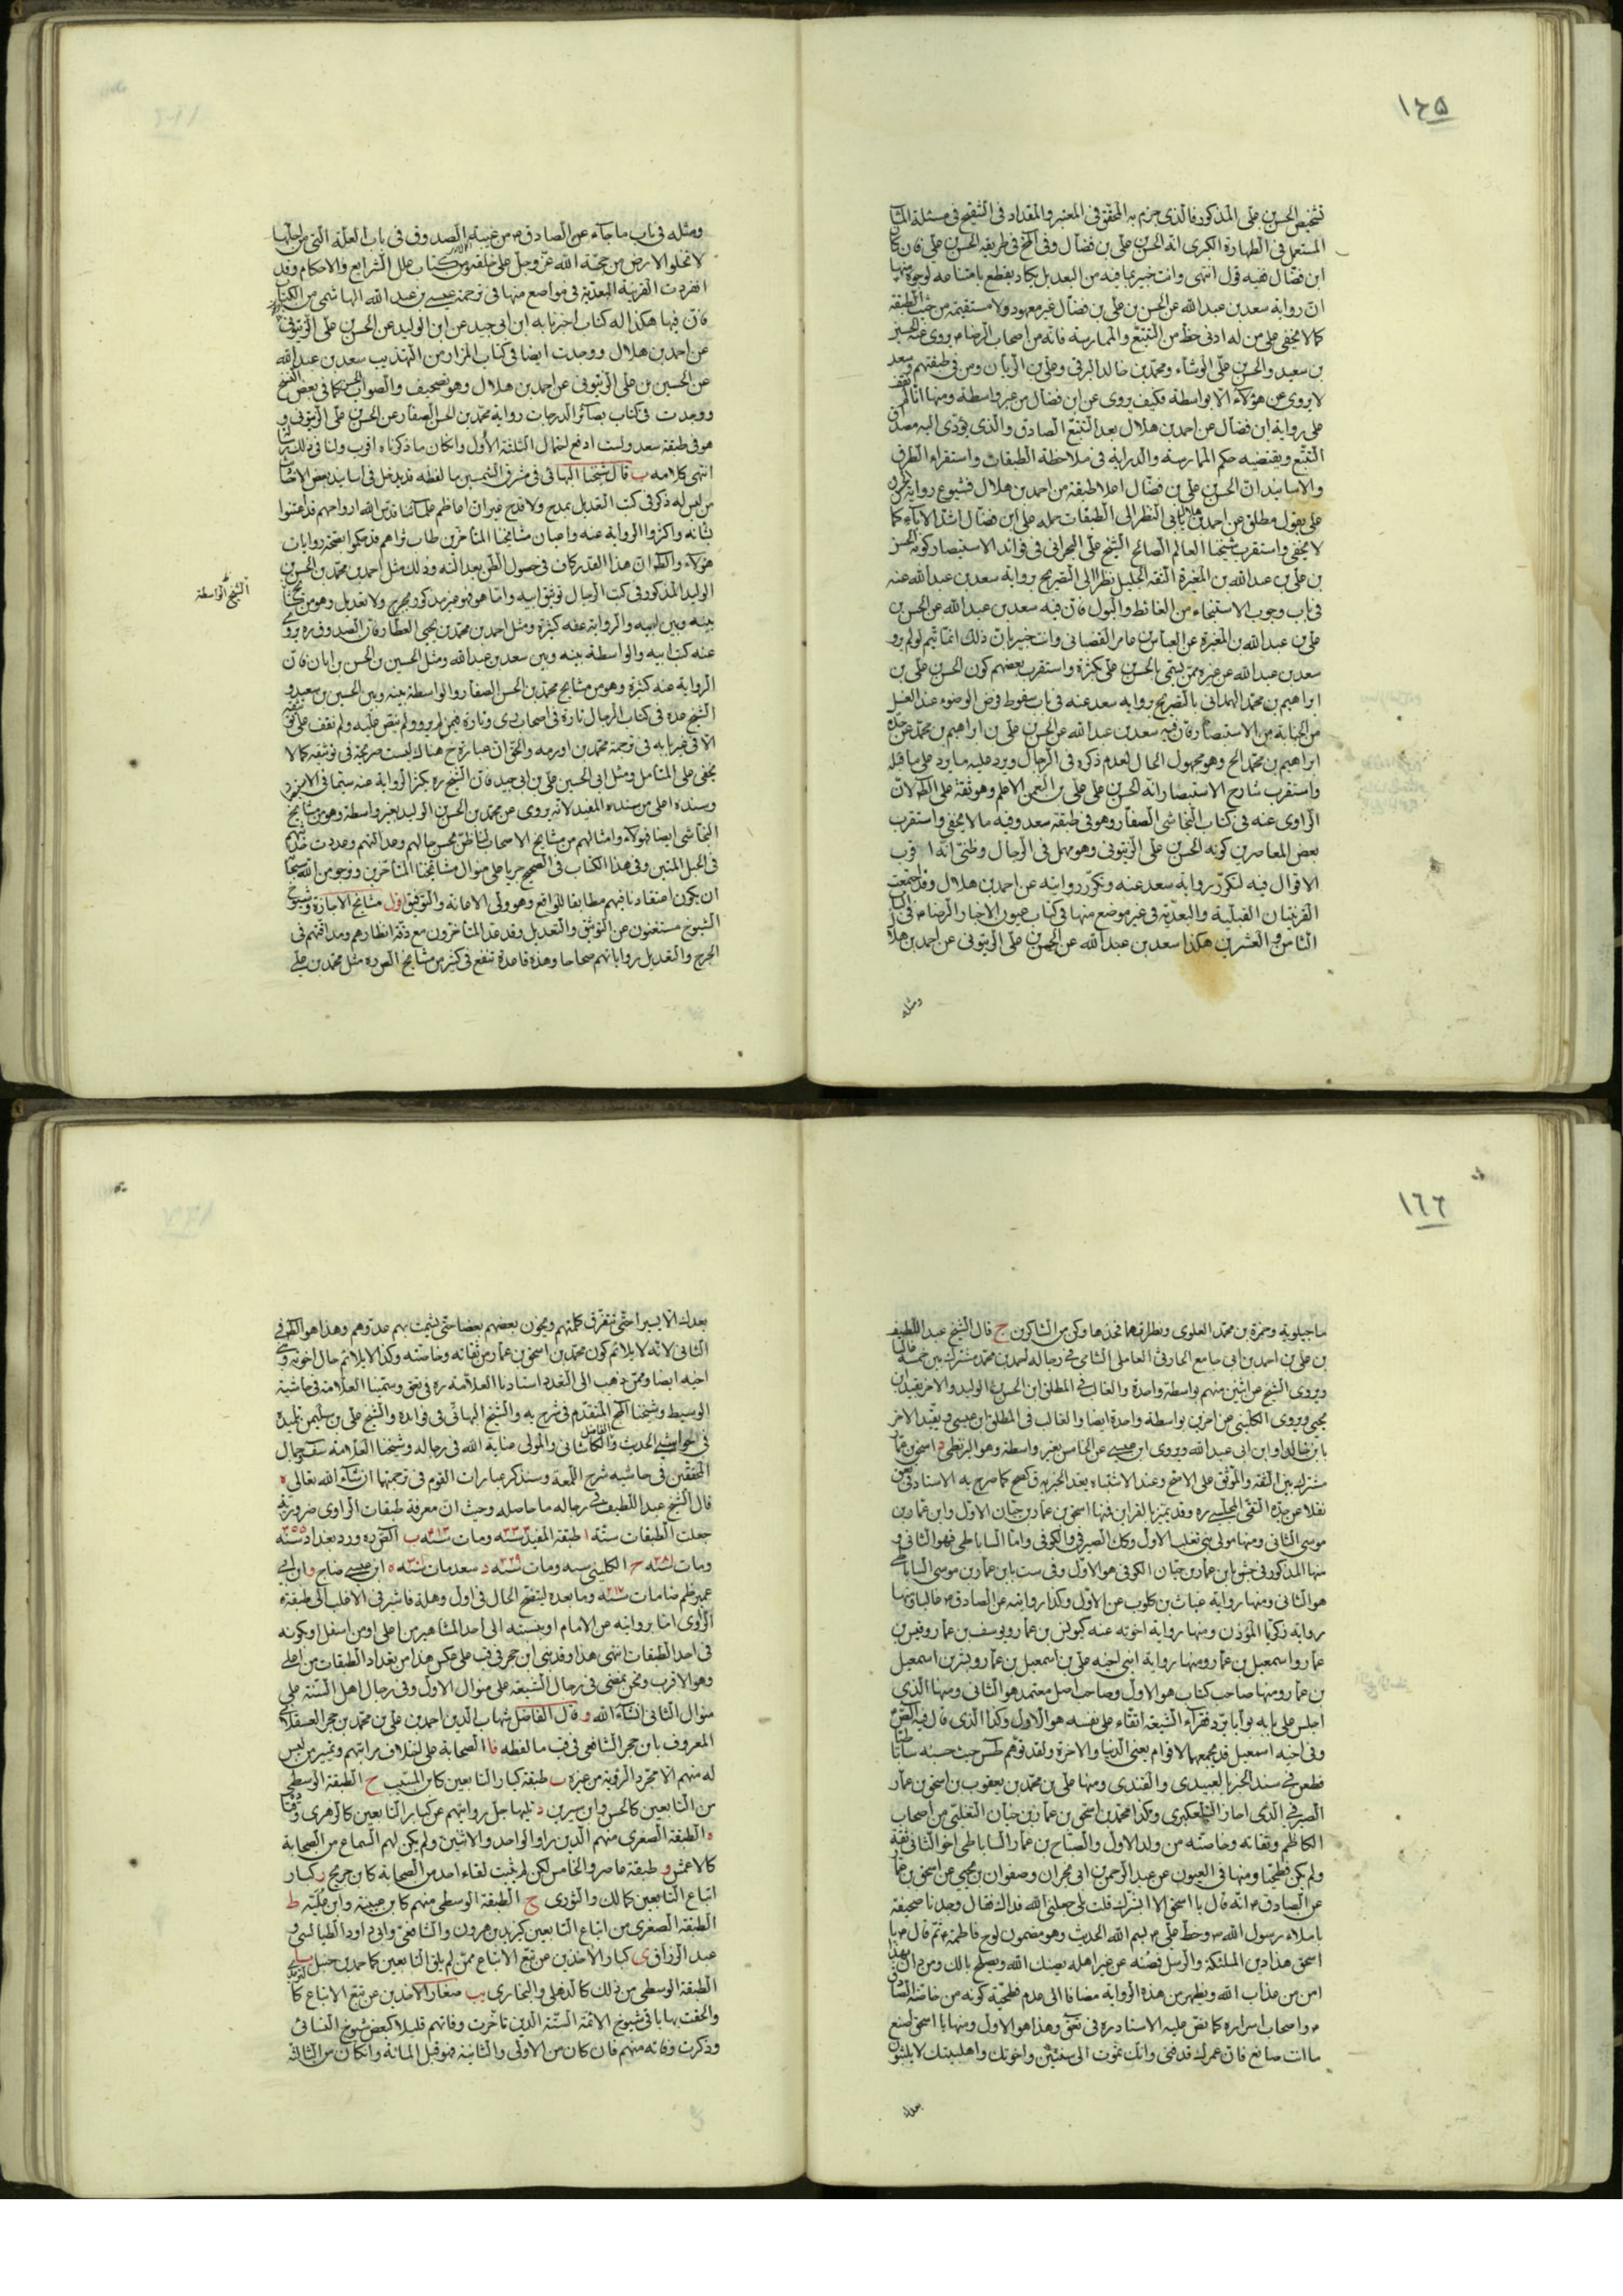 ١٦٥
تشخيص الحسن بن علي المذكور فالذي جزم به المحقق في المعتبر والمقداد في التنقيح في مسئلة الماء
المستعمل في الطهارة الكبرى انه الحسن بن علي بن فضال وفي الخ في طريقه الحسن بن علي فان كان
ابن فضال ففيه قول انتهى وانت خبير بما فيه من البعد بل يكاد يقطع بامتناعه لوجوه منها
ان رواية سعد بن عبد الله عن الحسن بن علي بن فضال غير معهود ولا مستقيمة من حيث الطبقة
كما لا يخفى على من له ادنى حظ من التتبع والممارسة فانه من اصحاب الرضا ع يروى عنه الحسين
بن سعيد والحسن بن علي الوشاء ومحمد بن خالد البرقي وعلي بن الريان ومن في طبقتهم وسعد
لا يروى عن هؤلاء الا بواسطة فكيف يروى عن ابن فضال من غير واسطة ومنها انا لم نقف
على رواية ابن فضال عن احمد بن هلال بعد التتبع الصادق والذي يؤدى اليه مصدق
التتبع ويقتضيه حكم الممارسة والدراية في ملاحظة الطبقات واستقراء الطرق
والاسانيد ان الحسن بن علي بن فضال اعلا طبقة من احمد بن هلال فشيوع رواية
على بقول مطلق عن احمد بن هلال يأبى النظر الى الطبقات حمله على ابن فضال اشد الاباء كما
لا يخفى واستقرب شيخنا العالم الصالح الشيخ علي البحراني في فوائد الاستبصار كونه الحسن
بن علي بن عبد الله بن المغيرة الثقة الجليل نظرا الى التصريح برواية سعد بن عبد الله عنه
في باب وجوب الاستنجاء من الغائط والبول فان فيه سعد بن عبد الله عن الحسن بن
علي بن عبد الله بن المغيرة عن العباس بن عامر القصباني وانت خبير بان ذلك انما يتم لو لم يرو
سعد بن عبد الله عن غيره ممن يسمى بالحسن بن علي بكثرة واستقرب بعضهم كون الحسن بن علي بن
ابراهيم بن محمد الهمداني بالتصريح برواية سعد عنه في باب سقوط فرض الوضوء عند الغسل
من الجنابة من الاستبصار فان فيه سعد بن عبد الله عن الحسن بن علي بن ابراهيم بن محمد عن جده
ابراهيم بن محمد الخ وهو مجهول الحال لعدم ذكره في الرجال ويرد عليه ما يرد على ما قبله
واستقرب شارح الاستبصار انه الحسن بن علي بن النعمن الاعلم وهو ثقة على الظ لان
الراوى عنه في كتاب النجاشي الصفار وهو في طبقة سعد وفيه ما لا يخفى واستقرب
بعض المعاصرين كونه الحسن بن علي الزيتونى وهو مهمل في الرجال وظنى انه اقرب
الاقوال فيه لتكرر رواية سعد عنه وتكرر روايته عن احمد بن هلال وقد اجتمعت
القرينتان القبلية والبعدية في غير موضع منها في كتاب عيون الاخبار الرضا ع في الباب
الثامن والعشرين هكذا سعد بن عبد الله عن الحسن بن علي الزيتونى عن احمد بن هلال
ومثله
ومثله في باب ما جاء عن الصادق ع من غيبة الصدوق في باب العلة التي من اجلها
لا تخلو الارض من حجة الله عز وجل على خلقه من كتاب علل الشرايع والاحكام وقد
انفردت القرينة البعدية في مواضع منها في ترجمة عيسى بن عبد الله الهاشمى من الكتاب
فان فيها هكذا له كتاب اخبرنا به ابن ابي جيد عن ابن الوليد عن الحسن بن علي الزيتونى
عن احمد بن هلال ووجدت ايضا في كتاب المزار من التهذيب سعد بن عبد الله
عن الحسين بن علي الزيتونى عن احمد بن هلال وهو تصحيف والصواب الحسن كما في بعض النسخ
ووجدت في كتاب بصائر الدرجات رواية محمد بن الحسن الصفار عن الحسن بن علي الزيتونى و
هو في طبقة سعد ولست ادفع احتمال الثلثة الأول وان كان ما ذكرناه اقرب ولنا في ذلك رسالة
انتهى كلامه ب قال شيخنا البهائى في مشرق الشمسين ما لفظه قد يدخل في اسانيد بعض الاخبار
من ليس له ذكر في كتب التعديل بمدح ولا قدح غير ان اعاظم علمائنا قدس الله ارواحهم قد اعتنوا
بشانه واكثروا الرواية عنه واعيان مشايخنا المتأخرين طاب ثراهم قد حكموا بصحة روايات
هؤلاء والظ ان هذا القدر كاف في حصول الظن بعدالته وذلك مثل احمد بن محمد بن الحسن بن
الوليد المذكور في كتب الرجال توثيق ابيه واما هو فغير مذكور بجرح ولا تعديل وهو من مشايخ
الشيخ الواسطة
بينه وبين ابيه والرواية عنه كثيرة ومثل احمد بن محمد بن يحيى العطار فان الصدوق ره يروى
عنه كثيرا ابيه والواسطة بينه وبين سعد بن عبد الله ومثل الحسين بن الحسن بن ابان فان
الرواية عنه كثيرة وهو من مشايخ محمد بن الحسن الصفار والواسطة بينه وبين الحسين بن سعيد و
الشيخ عده في كتاب الرجال تارة في اصحاب كرى وتارة فيمن لم يرو ولم ينص عليه ولم نقف على توثيقه
الا في غير بابه في ترجمة محمد بن اورمه والحق ان عبارة ح هناك ليست صريحة في توثيقه كما لا
يخفى على المتأمل ومثل ابى الحسين علي بن ابى جيد فان الشيخ ره يكثر الرواية عنه سيما في الاستبصار
وسنده اعلى من سنده المفيد لانه يروى عن محمد بن الحسن بن الوليد بغير واسطة وهو من مشايخ
النجاشى ايضا فهؤلاء وامثالهم من مشايخ الاصحاب لنا ظن بحسن حالهم وعدالتهم وعددت حديثهم
في الحبل المتين وفي هذا الكتاب في الصحيح جريا على منوال مشايخنا المتأخرين ونرجو من الله سبحانه
ان يكون اعتقادنا فيهم مطابقا للواقع وهو ولى الاعانة والتوفيق اول مشايخ الاجازة وشيوخ
الشيوخ مستغنون عن التوثيق والتعديل وقد عد المتأخرون مع دقة انظارهم ومداقتهم في
الجرح والتعديل رواياتهم صحاحا وهذه قاعدة تنفع في كثير من مشايخ الصدوق ره مثل محمد بن علي
١٦٦
ماجيلويه وحمزة بن محمد العلوى ونظرائهما فخذها وكن من الشاكرين ج قال الشيخ عبد اللطيف
بن علي بن احمد بن ابى جامع الحارثى العاملى الشامى في رجاله احمد بن محمد مشترك بين خمسة غالبا
ويروى الشيخ عن اثنين منهم بواسطة واحدة والغالب في المطلق ابن الحسن بن الوليد والاخر يقيد بابن
يحيى ويروى الكلينى عن اخرين بواسطة واحدة ايضا والغالب في المطلق ابن عيسى ويقيد الاخر
بابن خالد او ابن ابى عبد الله ويروى ابن عيسى عن الخامس بغير واسطة وهو البزنطى د اسحق بن عمار
مشترك بين الثقة والموثق على الاصح وعند الاشتباه يعد الخبر به ق كصح كما صرح به الاستاد في تعق
نقلا عن جده التقى المجلسى ره وقد يتميز بالقراين فمنها اسحق بن عمار بن حيان الاول وابن عمار بن
موسى الثانى ومنها مولى بنى تغلب الاول وكذا الصيرفى والكوفى واما الساباطى فهو الثانى و
منها المذكور في جش ابن عمار بن حيان الكوفى هو الاول وفي ست بابن عمار بن موسى الساباطى
هو الثانى ومنها رواية غياث بن كلوب عن الاول وكذا روايته عن الصادق ع غالبا ومنها
رواية زكريا المؤذن ومنها رواية اخوته عنه كيونس بن عمار ويوسف بن عمار وقيس بن
عمار واسمعيل بن عمار ومنها رواية ابنى اخيه علي بن اسمعيل بن عمار وبشر بن اسمعيل
بن عمار ومنها صاحب كتاب هو الاول وصاحب اصل معتمد هو الثانى ومنها الذى
اجلس على بابه بوابا يرد فقراء الشيعة اتقاء على نفسه هو الاول وكذا الذى قال فيه الصادق
وفي اخيه اسمعيل قد يجمعهما لاقوام يعنى الدنيا والاخرة ولقد توهم طس حيث حسبه ساباطيا
فطعن في سند الخبر بالعبيدى والقندى ومنها علي بن محمد بن يعقوب بن اسحق بن عمار
الصيرفى الذى اجاز التلعكبرى وكذا محمد بن اسحق بن عمار بن حيان التغلبى من اصحاب
الكاظم وثقاته وخاصته من ولد الاول والصباح بن عمار الساباطى اخو الثانى ثقة
ولم يكن فطحيا ومنها في العيون عن عبد الرحمن بن ابى نجران وصفوان بن يحيى عن اسحق بن عمار
عن الصادق ع انه قال يا اسحق الا ابشرك قلت بلى جعلنى الله فداك فقال وجدنا صحيفة
باملاء رسول الله ص وخط علي ع بسم الله الحديث وهو مضمون لوح فاطمة ع ثم قال ع يا
اسحق هذا دين الملئكة والرسل فصنه عن غير اهله يصنك الله ويصلح بالك ومن دان بهذا
امن من عذاب الله ويظهر من هذه الرواية مضافا الى عدم فطحيته كونه من خاصة الصادق
ع واصحاب اسراره كما نص عليه الاستاد ره في تعق وهذا هو الاول ومنها يا اسحق اصنع
ما انت صانع فان عمرك قد فنى وانك تموت الى سنتين واخوتك واهل بيتك لا يلبثون
بعدك
بعدك الا يسيرا حتى تتفرق كلمتهم ويخون بعضهم بعضا حتى يشمت بهم عدوهم وهذا هو الظ في
الثانى لانه لا يلائم كون محمد بن اسحق بن عمار من ثقاته وخاصته وكذا لا يلائم حال اخوته و
اخيه ايضا وممن ذهب الى التعدد استادنا العلامة ره في تعق وسمينا العلامة في حاشية
الوسيط وشيخنا الخ المتقدم في شرح به والشيخ البهائى في فوايده والشيخ علي بن سليمن تلميذه
في حواشى الحديث والفاضل الكاشانى والمولى عناية الله في رجاله وشيخنا العلامة سقى جمال
المحققين في حاشيه شرح اللمعة وسنذكر بعبارات القوم في ترجمتها ان شاء الله تعالى ه
قال الشيخ عبد اللطيف في رجاله ما حاصله وحيث ان معرفة طبقات الراوى ضرورية
جعلت الطبقات ستة ا طبقة المفيد سنة ٣٣٣ ومات سنه ٤١٣ ب الصدوق ره ورد بغداد سنه ٣٥٥
ومات سنه ٣٨١ ح الكلينى سبه ومات سنه ٣٢٩ د سعد مات سنه ٣٠١ ه ابن عيسى و ابن ابى
عمير ظم ضا مات سنه ٢١٧ وما بعده ليتضح الحال في اول وهلة فاشير في الاغلب الى طبقة
الراوى اما بروايته عن الامام او بنسبته الى احد المشاهير من اعلى او من اسفل او كونه
في احد الطبقات انتهى هذا وقد بنى ابن حجر في قب على عكس هذا من تعداد الطبقات من اعلى
وهو الاقرب ونحن نمضى في رجال الشيعة على منوال الاول وفي رجال اهل السنة على
منوال الثانى انشاء الله و قال الفاضل شهاب الدين احمد بن علي بن محمد بن حجر العسقلانى
المعروف بابن حجر الشافعى في قب ما لفظه فا الصحابة على اختلاف مراتبهم وتميز من ليس
له منهم الا مجرد الرؤية من غيره ب طبقة كبار التابعين كابن المسيب ج الطبقة الوسطى
من التابعين كالحسن وابن سيرين د تليها جل روايتهم عن كبار التابعين كالزهرى وقتادة
ه الطبقة الصغرى منهم الذين راوا الواحد والاثنين ولم يكن لهم السماع من الصحابة
كالاعمش و طبقة عاصروا الخامس لكن لم يثبت لقاء احد من الصحابة كابن جريج ز كبار
اتباع التابعين كمالك والثورى ح الطبقة الوسطى منهم كابن عيينة وابن علية ط
الطبقة الصغرى من اتباع التابعين كيزيد بن هرون والشافعى وابى داود الطيالسى و
عبد الرزاق ى كبار الاخذين عن تبع الاتباع ممن لم يلق التابعين كاحمد بن حنبل يا
الطبقة الوسطى من ذلك كالذهلى والبخارى يب صغار الاخذين عن تبع الاتباع كالترمذى
والحقت بها باقى شيوخ الائمة الستة الذين تأخرت وفاتهم قليلا كبعض شيوخ النسائى
وذكرت وفاته منهم فان كان من الاولى والثانية فهو قبل المائة وان كان من الثالثة